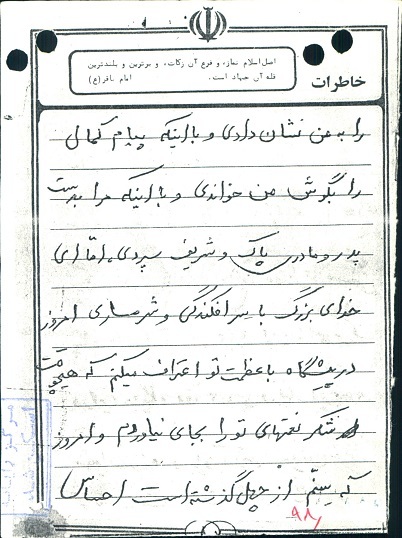 اصل اسلام نماز، و فرع آن زکات، و برترین و بلندترین
قله آن جهاد است. امام باقر(ع)
خاطرات
را به من نشان دادی و با اینکه پیام کمالی
را بگوش من خواندی و با اینکه مرا بدست
پدر و مادری پاک و شریف سپردی، امّا ای
خدای بزرگ با سرافکندگی و شرمساری امروز
در پیشگاه با عظمت تو اعتراف میکنم که هیچوقت
شکر نعمتهای تو را بجای نیاوردم و امروز
که سنّم از چهل گذشته است احساس
۹۸